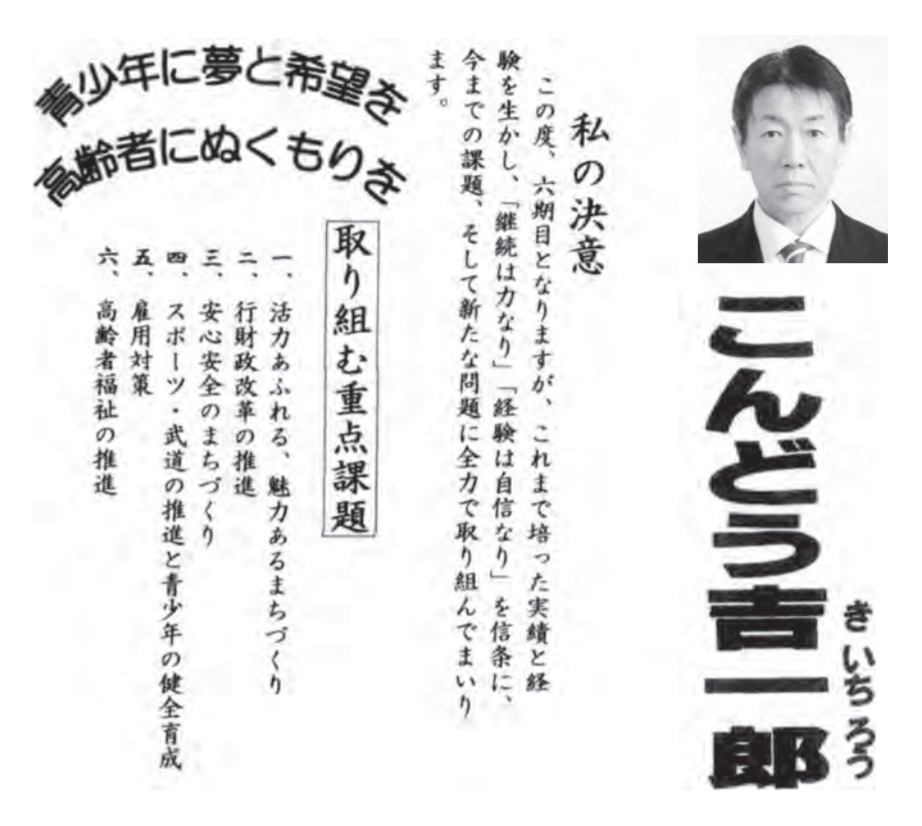 こんどう吉一郎
きいちろう
私の決意
この度、六期目となりますが、これまで培った実績と経
験を生かし、「継続は力なり」「経験は自信なり」を信条に、
今までの課題、そして新たな問題に全力で取り組んでまいり
ます。
青少年に夢と希望を
高齢者にぬくもりを
取り組む重点課題
一、活力あふれる、魅力あるまちづくり
二、行財政改革の推進
三、安心安全のまちづくり
四、スポーツ・武道の推進と青少年の健全育成
五、雇用対策
六、高齢者福祉の推進